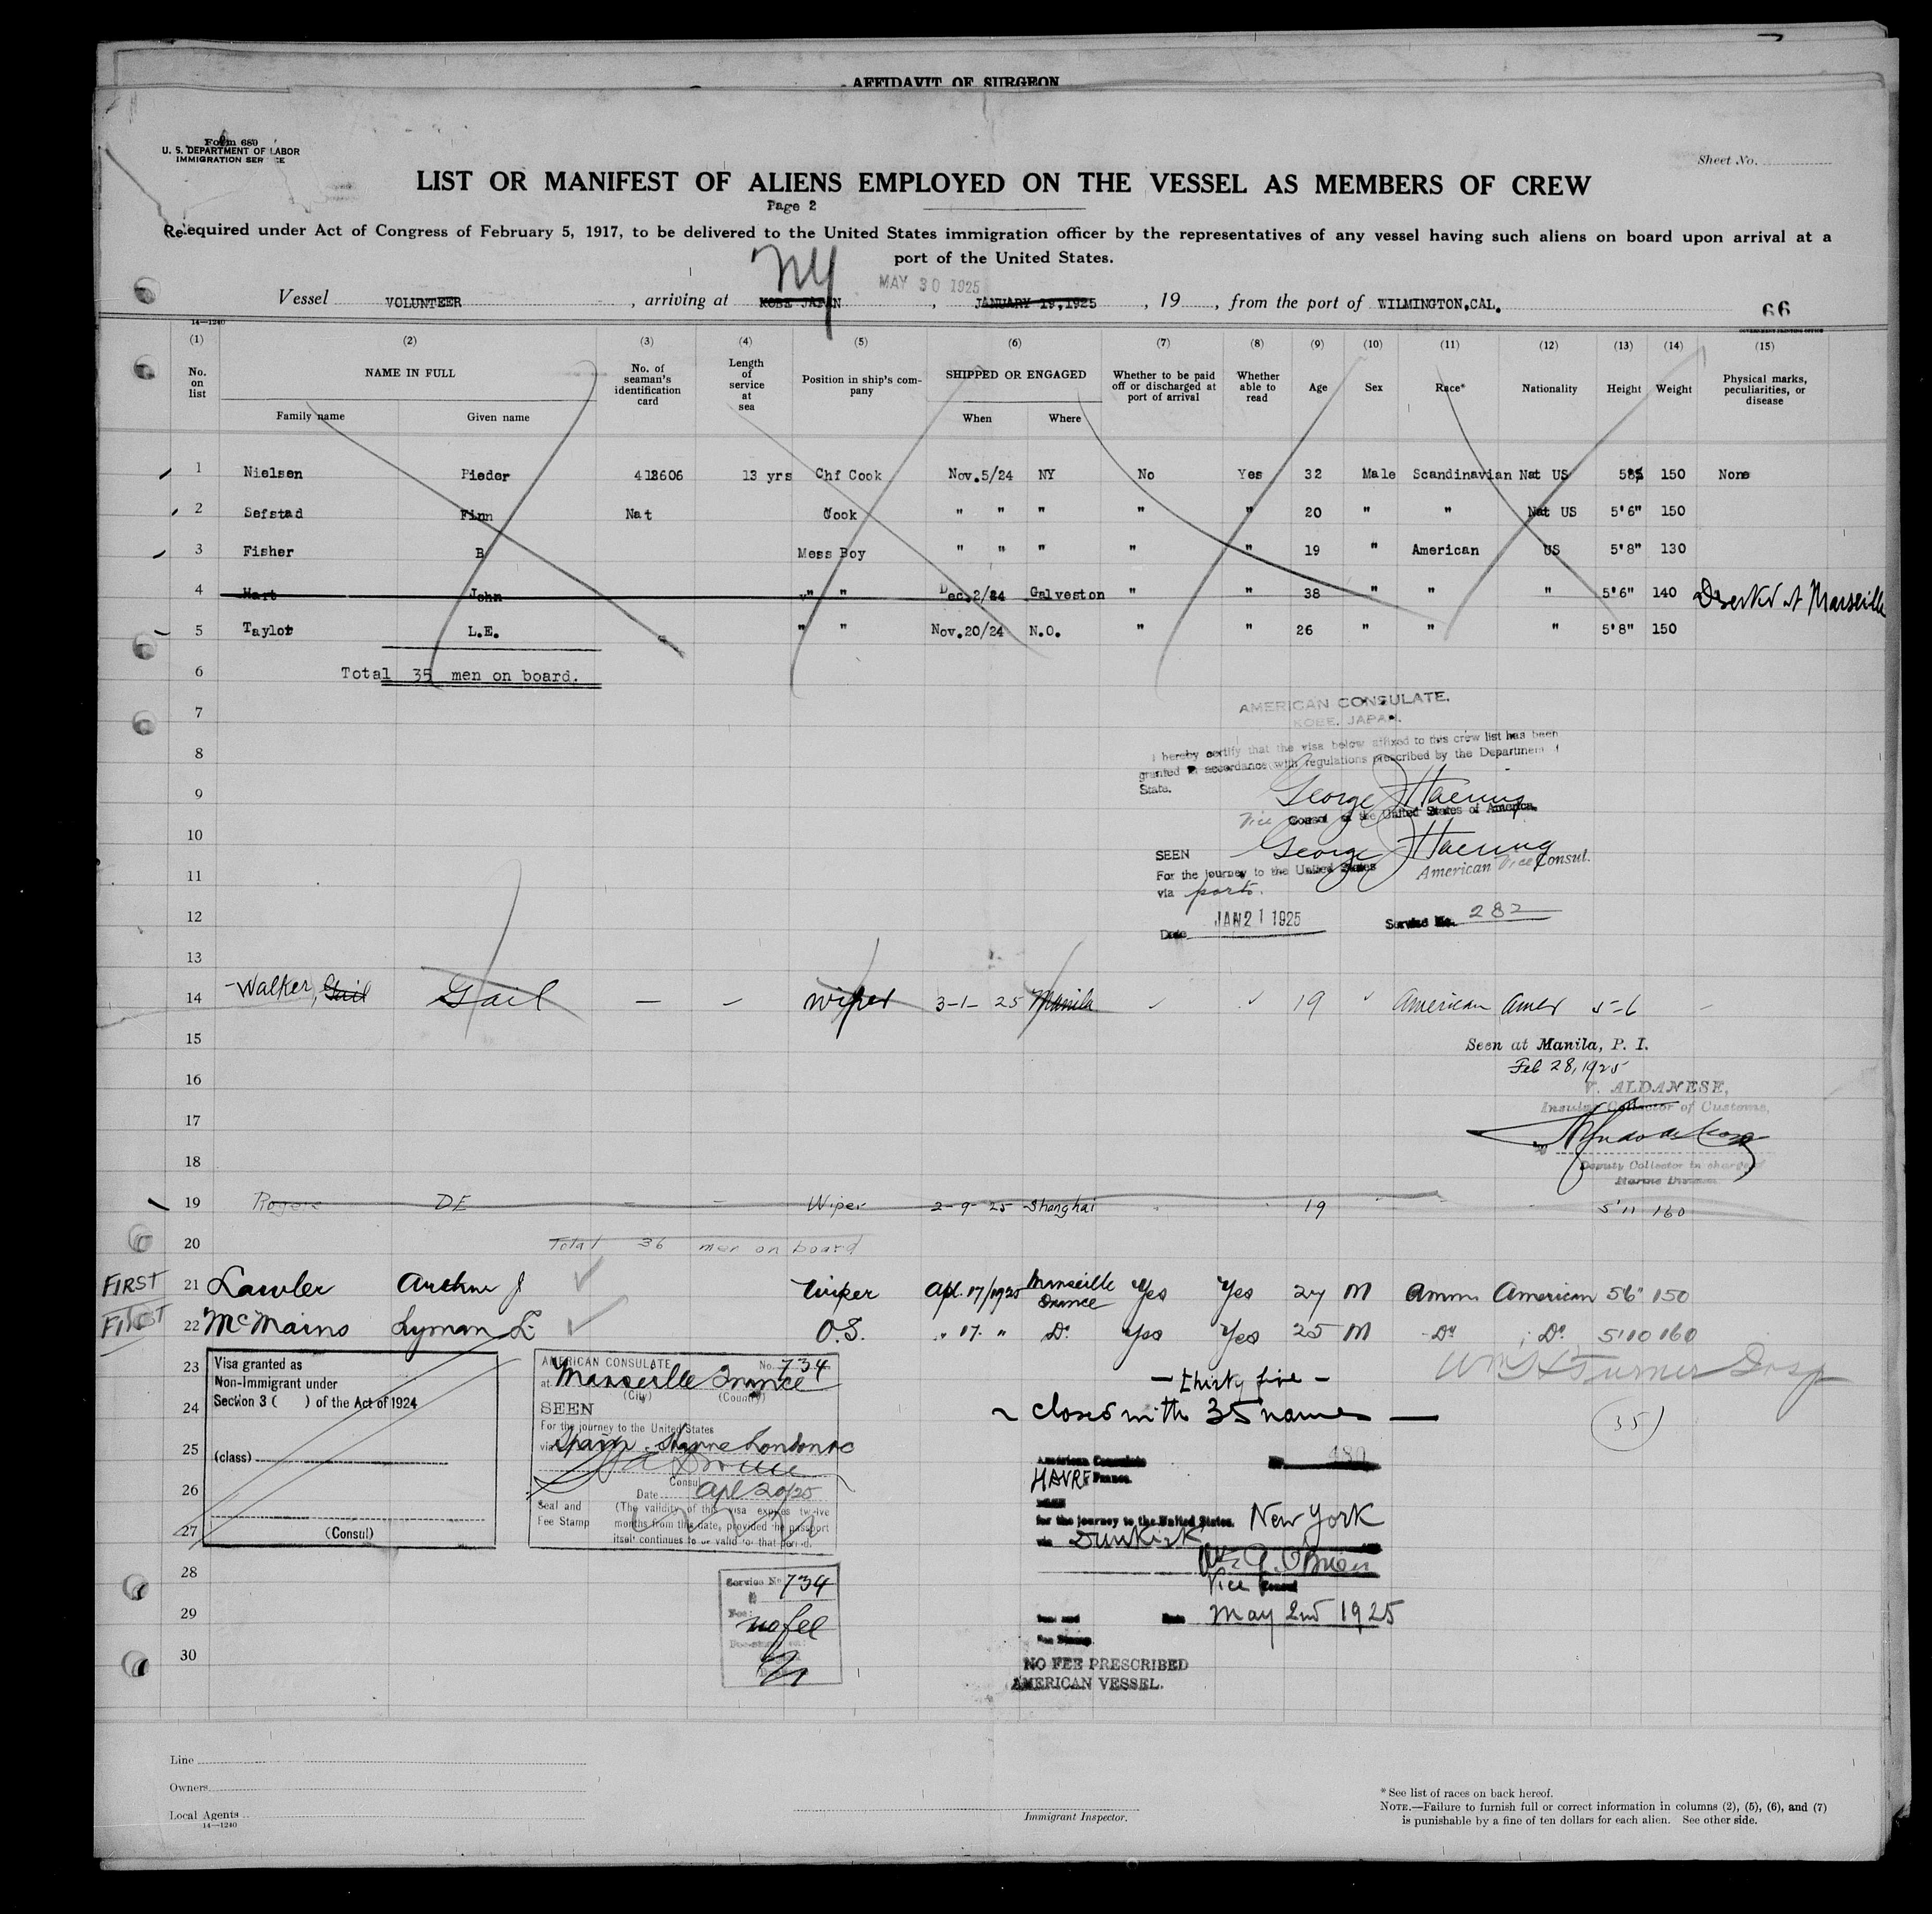 AFFIDAVIT OF SURGEON
Form 680
U. S. DEPARTMENT OF LABOR
IMMIGRATION SERVICE
Sheet No.
LIST OR MANIFEST OF ALIENS EMPLOYED ON THE VESSEL AS MEMBERS OF CREW
Page 2
Required under Act of Congress of February 5, 1917, to be delivered to the United States immigration officer by the representatives of any vessel having such aliens on board upon arrival at a
port of the United States.
NY
MAY 30 1925
Vessel VOLUNTEER , arriving at KOBE JAPAN , JANUARY 19,1925 , 19 , from the port of WILMINGTON,CAL.
66
14—1240
(1) (2) (3) (4) (5) (6) (7) (8) (9) (10) (11) (12) (13) (14) (15)
No. on list NAME IN FULL Family name Given name No. of seaman's identification card Length of service at sea Position in ship's company SHIPPED OR ENGAGED When Where Whether to be paid off or discharged at port of arrival Whether able to read Age Sex Race* Nationality Height Weight Physical marks, peculiarities, or disease
1 Nielsen Pieder 418606 13 yrs Chf Cook Nov.5/24 NY No Yes 32 Male Scandinavian Nat US 150 None
2 Sefstad Finn Nat Cook " " " " " 20 " " Nat US 5'6" 150
3 Fisher B Mess Boy " " " " " 19 " American US 5'8" 130
4 Hart John " " Dec.2/24 Galveston " " 38 " " " 5'6" 140 Deserted at Marseille
5 Taylor L.E. " " Nov.20/24 N.O. " " 26 " " " 5'8" 150
6 Total 35 men on board.
7
AMERICAN CONSULATE.
KOBE, JAPAN.
8
I hereby certify that the visa below affixed to this crew list has been
granted in accordance with regulations prescribed by the Department of
State.
9
George J Haering
Vice Consul of the United States of America.
10
George J Haering
SEEN
American Vice Consul.
11
For the journey to the United States
via ports.
12
Date JAN 21 1925 Service No. 282
13
14 Walker, Gail Gail — – Wiper 3-1-25 Manila 19 American Amer 5-6 –
15
Seen at Manila, P. I.
Feb 28, 1925
16
V. ALDANESE,
Insular Collector of Customs,
17
18
Deputy Collector in charge
Marine Division
19 Rogers DE – – Wiper 2-9-25 Shanghai 19 5'11 160
20 Total 36 men on board
FIRST 21 Lawler Arthur J Wiper Apl. 17/1925 Marseille France Yes Yes 24 M Amm American 56" 150
FIRST 22 McMains Lyman L. O.S. " 17. " Do Yes Yes 25 M Do Do 5'10 160
Wm H Turner Insp
23
Visa granted as
Non-Immigrant under
Section 3 ( ) of the Act of 1924
(class)
(Consul)
AMERICAN CONSULATE No. 734
at Marseille France
(City) (Country)
SEEN
For the journey to the United States
via Spain
Consul
Date Apl 20/25
Seal and
Fee Stamp
(The validity of this visa expires twelve
months from this date, provided the passport
itself continues to be valid for that period.
— thirty five —
24
~ Closed with 35 names —
35
25
American Consulate
480
HAVRE France.
26
for the journey to the United States. New York
27
via Dunkirk
O'Brien
Vice Consul
28
Service No 734
Fee:
no fee
29
Seal and
Fee Stamp
Date May 2nd 1925
30
NO FEE PRESCRIBED
AMERICAN VESSEL.
Line
Owners
Local Agents
14—1240
Immigrant Inspector.
* See list of races on back hereof.
NOTE.—Failure to furnish full or correct information in columns (2), (5), (6), and (7)
is punishable by a fine of ten dollars for each alien. See other side.